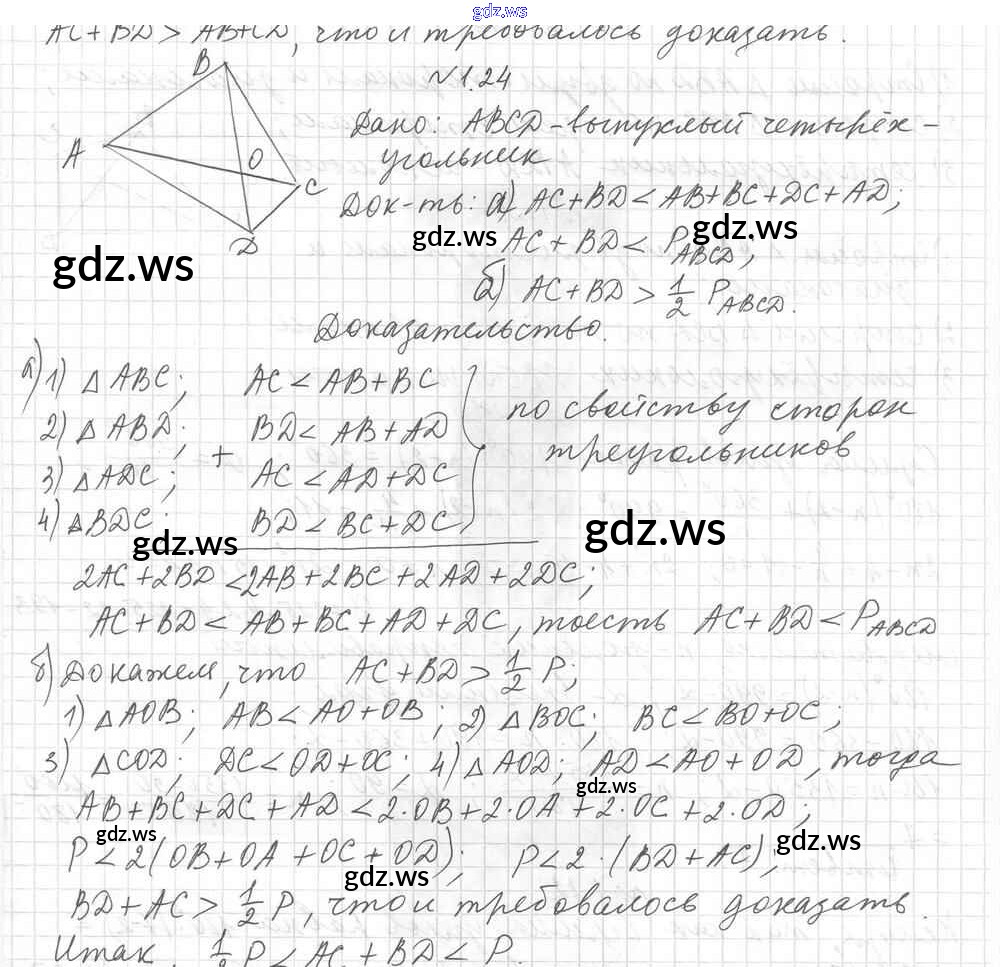 gdz.ws
AC+BD > AB+CD, что и требовалось доказать.
№1.24
B
A
O
C
D
Дано: ABCD - выпуклый четырёх-
угольник
Док-ть: а) AC+BD < AB+BC+DC+AD;
gdz.ws
gdz.ws
AC+BD < P_ABCD;
gdz.ws
б) AC+BD > 1/2 P_ABCD.
Доказательство.
а) 1) △ABC; AC < AB+BC
2) △ABD; BD < AB+AD
по свойству сторон
треугольников
+
3) △ADC; AC < AD+DC
4) △BDC; BD < BC+DC
gdz.ws
gdz.ws
2AC+2BD < 2AB+2BC+2AD+2DC;
AC+BD < AB+BC+AD+DC, тоесть AC+BD < P_ABCD
б) Докажем, что AC+BD > 1/2 P;
1) △AOB; AB < AO+OB; 2) △BOC; BC < BO+OC;
3) △COD; DC < OD+OC; 4) △AOD; AD < AO+OD, тогда
gdz.ws
AB+BC+DC+AD < 2·OB+2·OA+2·OC+2·OD;
gdz.ws
gdz.ws
P < 2(OB+OA+OC+OD); P < 2·(BD+AC);
gdz.ws
BD+AC > 1/2 P, что и требовалось доказать.
Итак, 1/2 P < AC+BD < P.